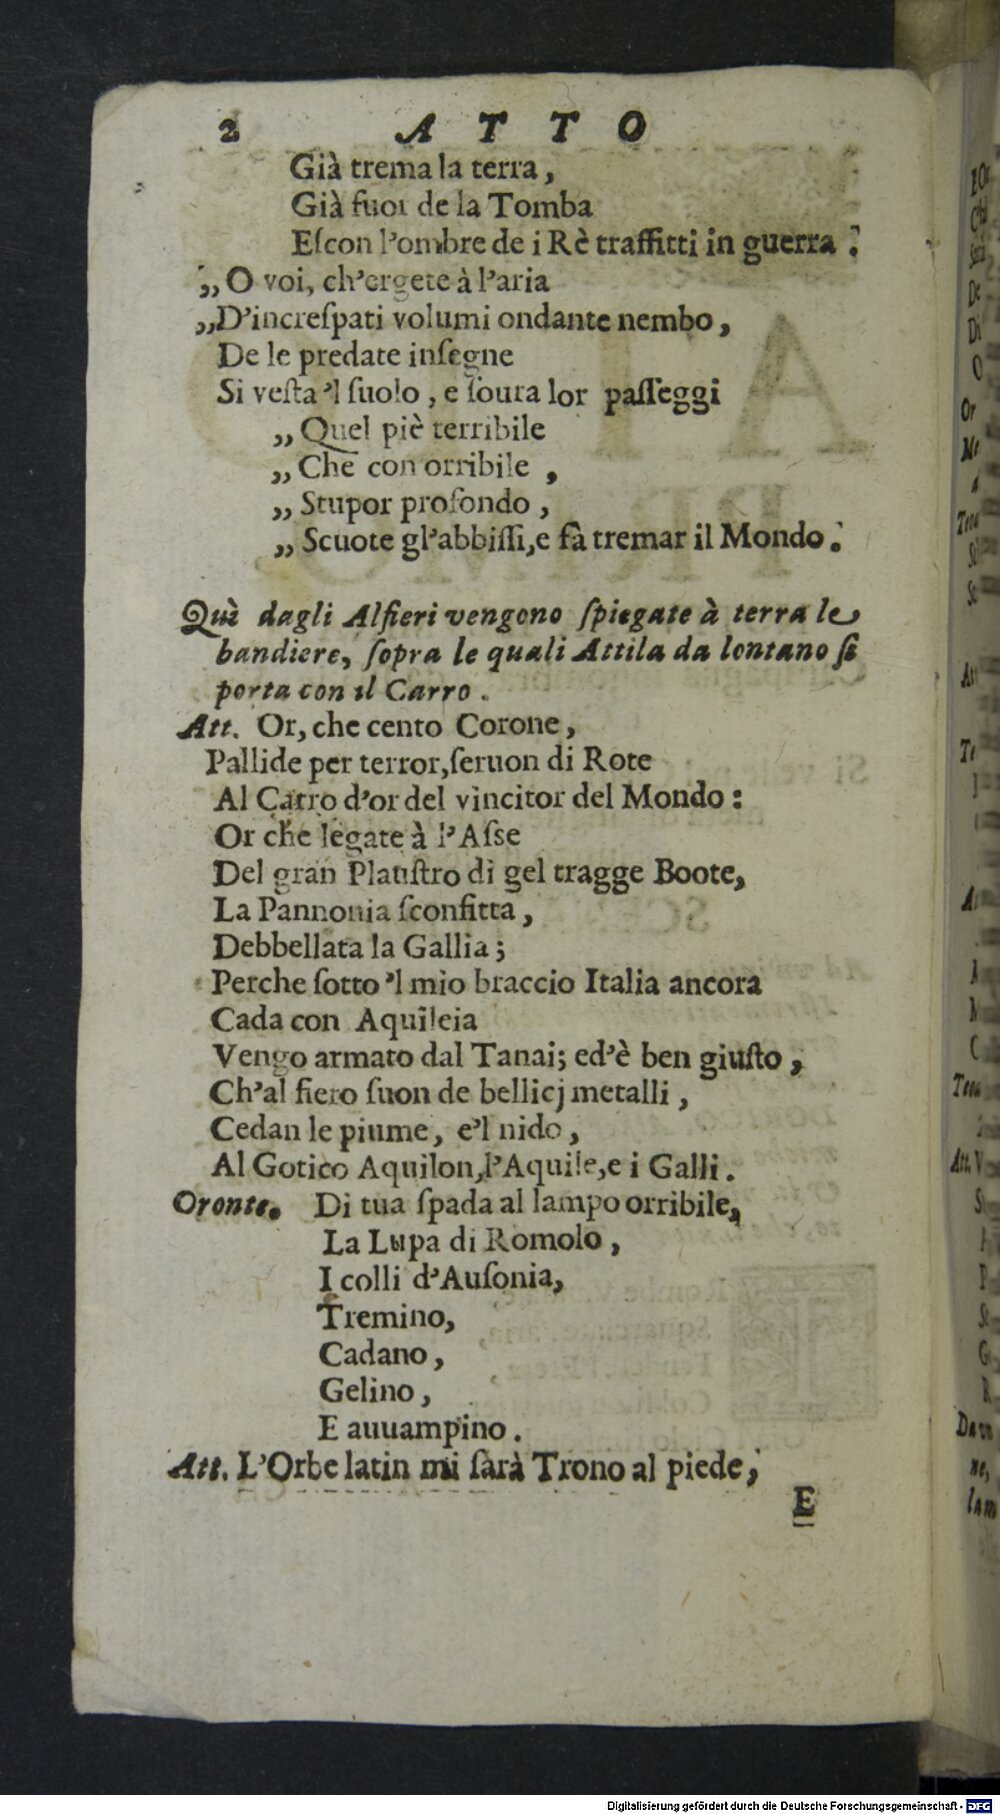 2 ATTO
Già trema la terra,
Già fuoi de la Tomba
Eſcon l'ombre de i Rè traffitti in guerra.
„O voi, ch'ergete à l'aria
„D'increſpati volumi ondante nembo,
De le predate inſegne
Si veſta 'l ſuolo, e ſoura lor paſſeggi
„Quel piè terribile
„Che con orribile,
„Stupor profondo,
„Scuote gl'abbiſſi,e fà tremar il Mondo.
Quì dagli Alfieri vengono ſpiegate à terra le
bandiere, ſopra le quali Attila da lontano ſi
porta con il Carro.
Att. Or, che cento Corone,
Pallide per terror,ſeruon di Rote
Al Carro d'or del vincitor del Mondo:
Or che legate à l'Aſſe
Del gran Plauſtro di gel tragge Boote,
La Pannonia ſconfitta,
Debbellata la Gallia;
Perche ſotto 'l mio braccio Italia ancora
Cada con Aquileia
Vengo armato dal Tanai; ed'è ben giuſto,
Ch'al fiero ſuon de bellicj metalli,
Cedan le piume, e'l nido,
Al Gotico Aquilon,l'Aquile,e i Galli.
Oronte. Di tua ſpada al lampo orribile,
La Lupa di Romolo,
I colli d'Auſonia,
Tremino,
Cadano,
Gelino,
E auuampino.
Att. L'Orbe latin mi ſarà Trono al piede,
E
Digitalisierung gefördert durch die Deutsche Forschungsgemeinschaft - DFG